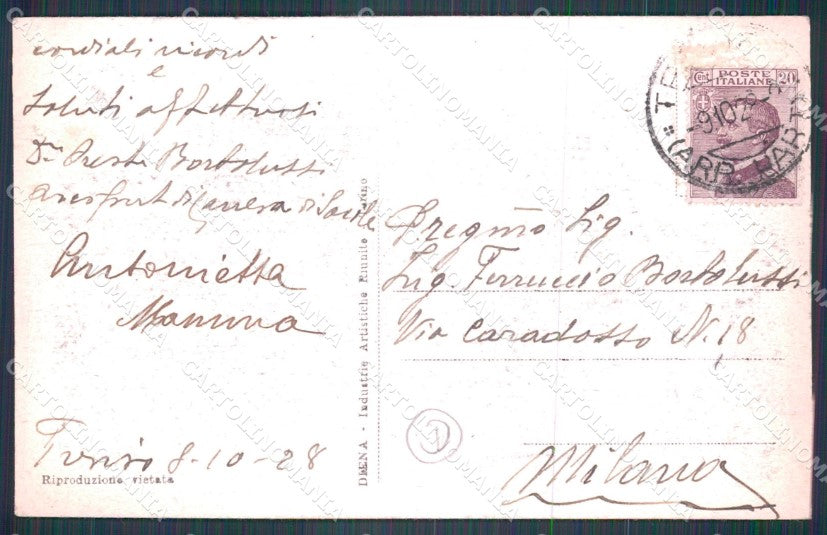 cordiali ricordi
e
saluti affettuosi
Bortolussi
di Sacile
Antonietta
Mamma
Treviso 8-10-28
Riproduzione vietata
DIENA - Industrie Artistiche Riunite - Torino
POSTE
ITALIANE
Cent 20
-9.10.28
(ARR. PART.)
Pregmo Sig.
Sig. Ferruccio Bortolussi
Via Caradosso N. 18
Milano
CARTOLINOMANIA